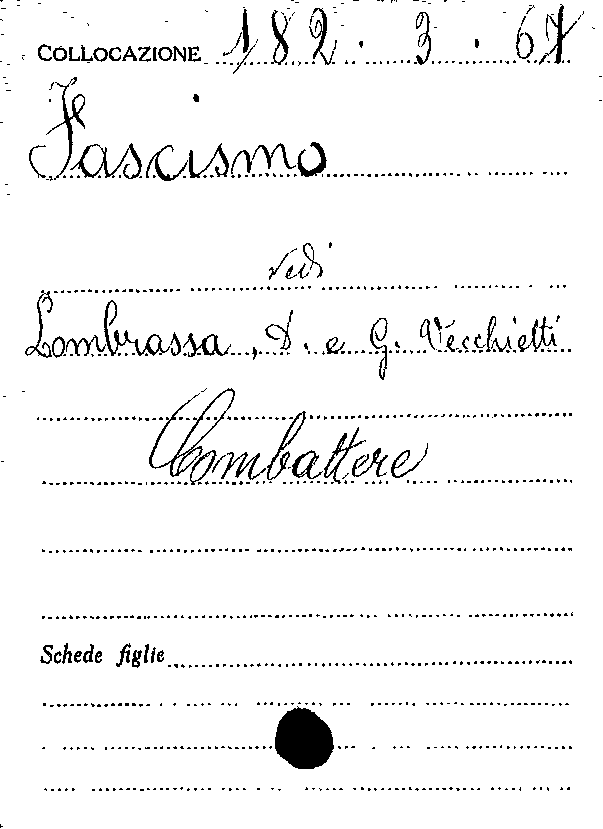 COLLOCAZIONE 182.3.67
Fascismo
vedi
Lombrassa, D. e G. Vecchietti
Combattere
Schede figlie